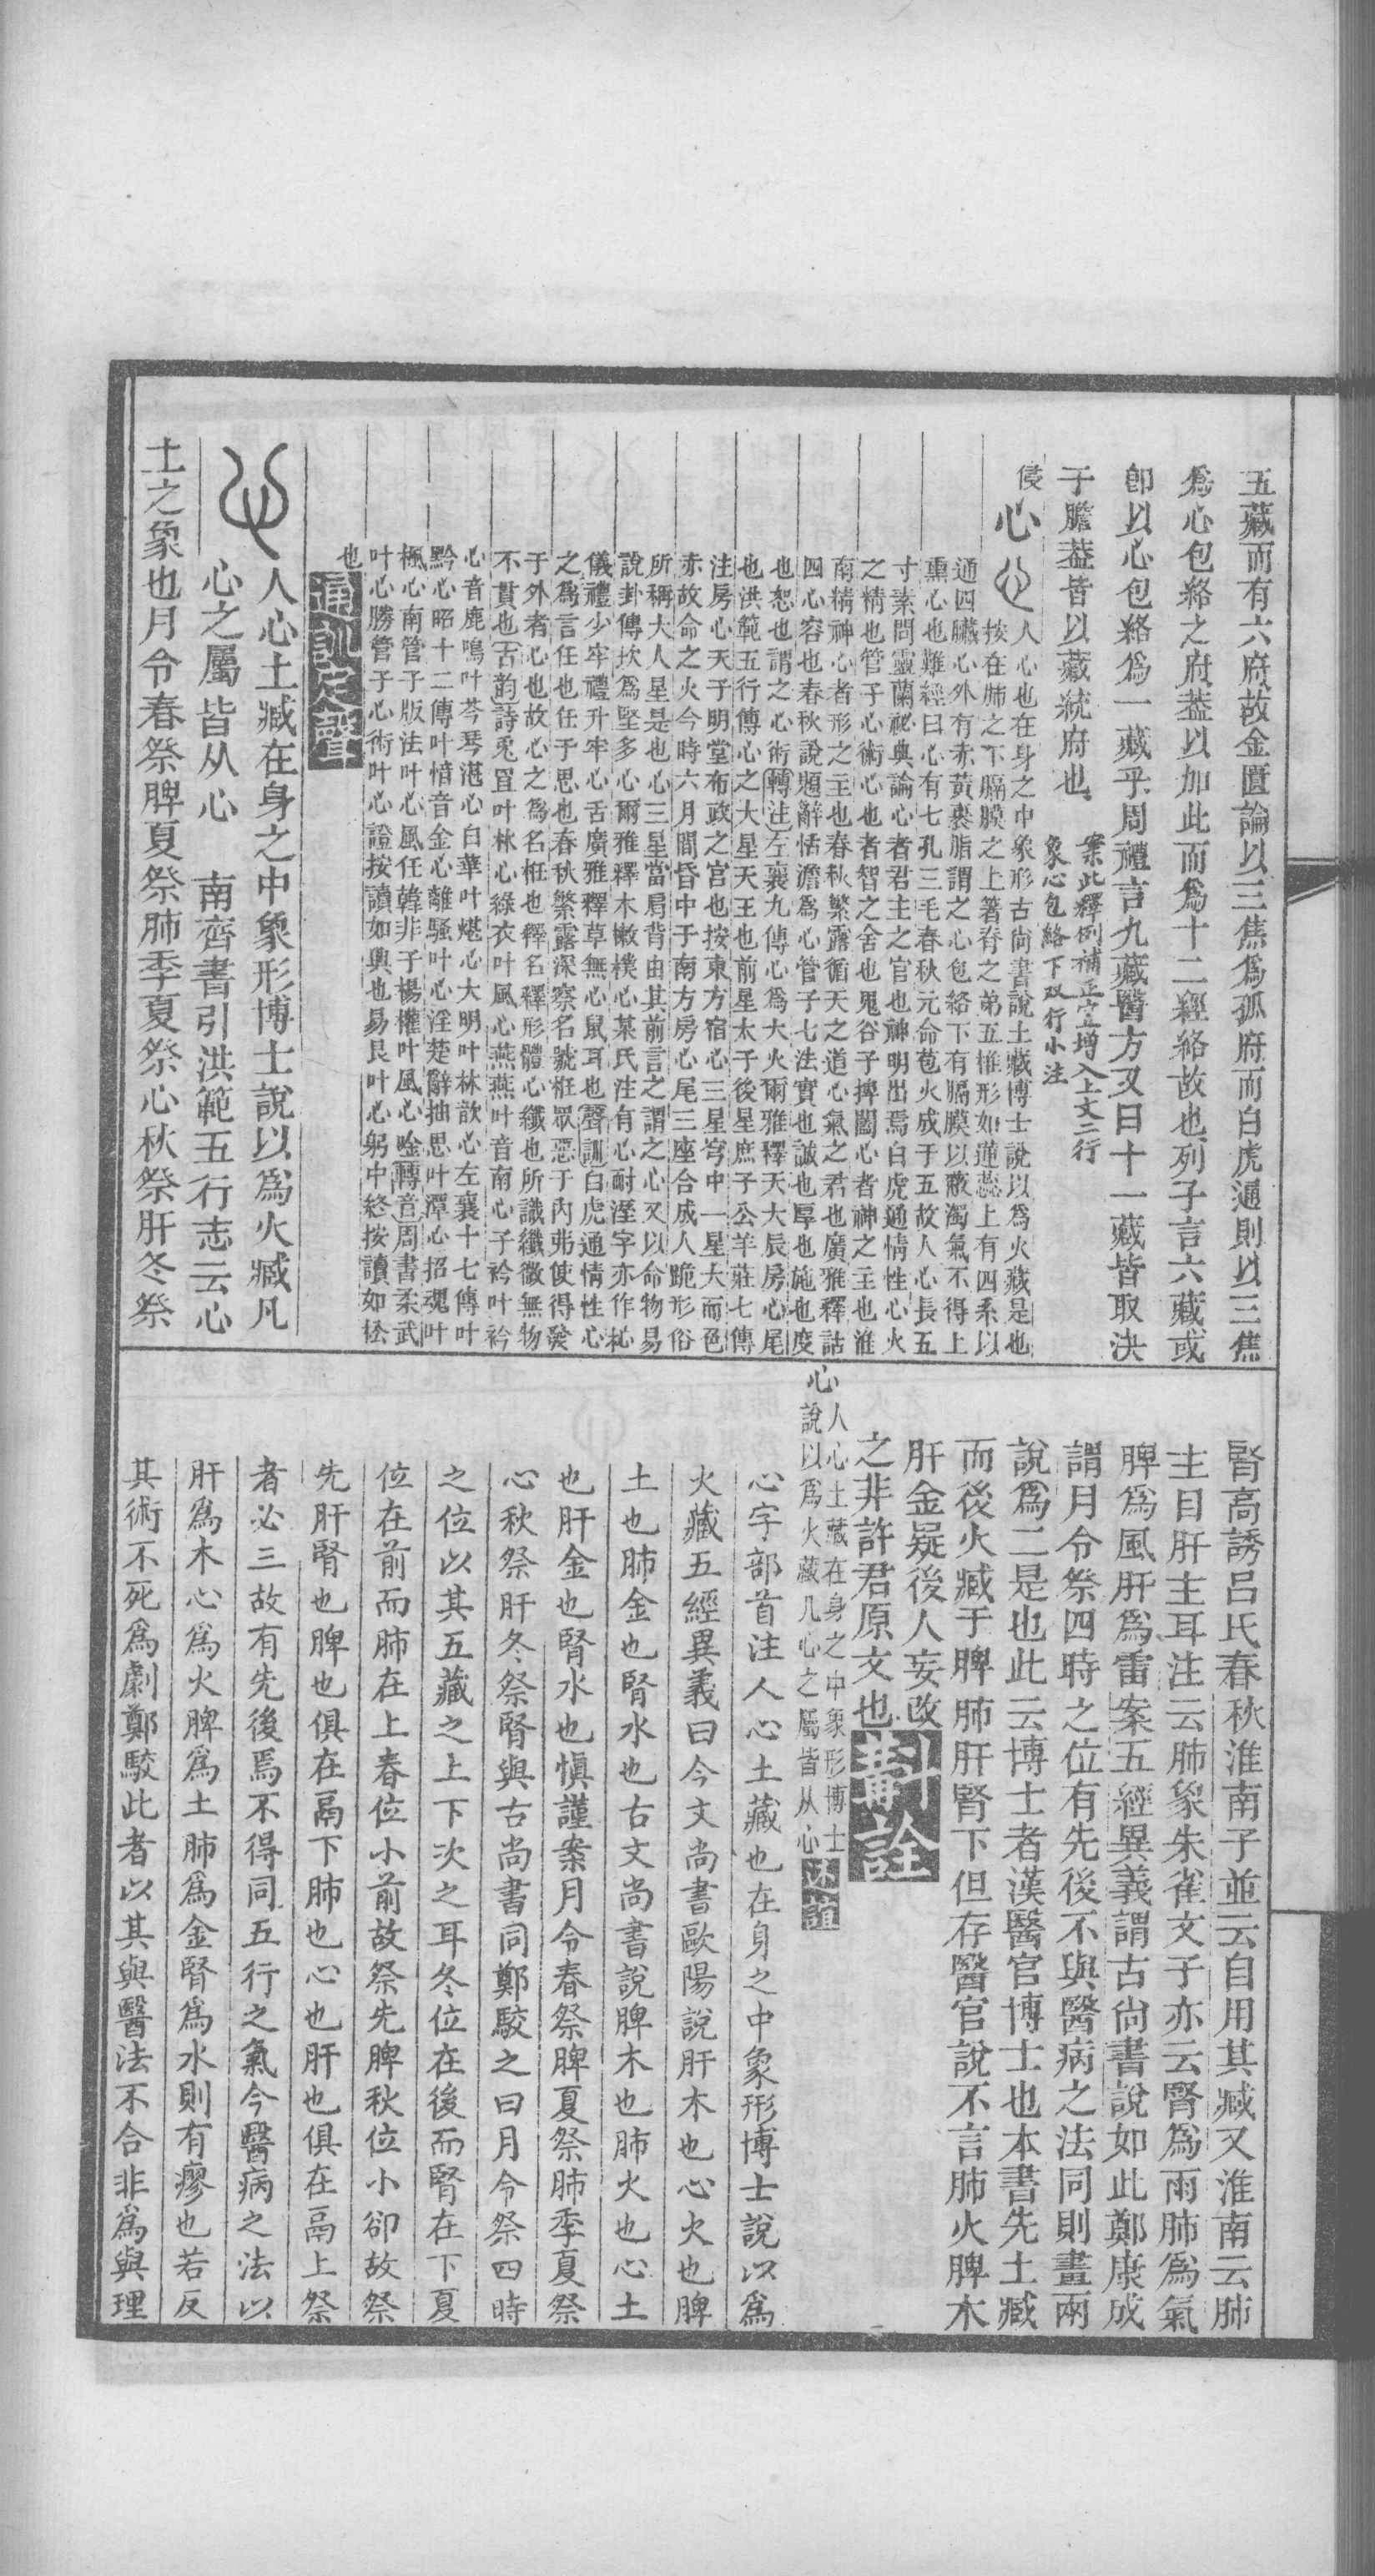 五藏而有六府故金匱論以三焦爲孤府而白虎通則以三焦
爲心包絡之府葢以加此而爲十二經絡故也列子言六藏或
卽以心包絡爲一藏乎周禮言九藏醫方又曰十一藏皆取決
于膽葢皆以藏統府也
案此釋例補正宜增入上文二行
象心包絡下双行小注
侵
心
人心也在身之中象形古尚書說土藏博士說以爲火藏是也
按在肺之下膈膜之上著脊之弟五椎形如蓮蕊上有四系以
通四臟心外有赤黃裹脂謂之心包絡下有膈膜以蔽濁氣不得上
熏心也難經曰心有七孔三毛春秋元命苞火成于五故人心長五
寸素問靈蘭祕典論心者君主之官也神明出焉白虎通情性心火
之精也管子心術心也者智之舍也鬼谷子捭闔心者神之主也淮
南精神心者形之主也春秋繁露循天之道心氣之君也廣雅釋詁
四心容也春秋說題辭恬澹爲心管子七法實也誠也厚也施也度
也恕也謂之心術轉注左襄九傳心爲大火爾雅釋天大辰房心尾
也洪範五行傳心之大星天王也前星太子後星庶子公羊莊七傳
注房心天子明堂布政之宮也按東方宿心三星穹中一星大而色
赤故命之火今時六月間昏中于南方房心尾三座合成人跪形俗
所稱大人星是也心三星當局背由其前言之謂之心又以命物易
說卦傳坎爲堅多心爾雅釋木樕樸心某氏注有心耐溼字亦作杺
儀禮少牢禮升牢心舌廣雅釋草無心鼠耳也聲訓白虎通情性心
之爲言任也任于思也春秋繁露深察名號栣眾惡于內弗使得發
于外者心也故心之爲名栣也釋名釋形體心纖也所識纖微無物
不貫也古韵詩兎罝叶林心綠衣叶風心燕燕叶音南心子衿叶衿
心音鹿鳴叶芩琴湛心白華叶煁心大明叶林歆心左襄十七傳叶
黔心昭十二傳叶愔音金心離騷叶心淫楚辭抽思叶潭心招魂叶
楓心南管子版法叶心風任韓非子楊權叶風心唫轉音周書柔武
叶心勝管子心術叶心證按讀如興也易艮叶心躬中終按讀如松
也
通訓定聲
人心土臧在身之中象形博士說以爲火臧凡
心之屬皆从心
南齊書引洪範五行志云心
土之象也月令春祭脾夏祭肺季夏祭心秋祭肝冬祭
腎高誘呂氏春秋淮南子並云自用其臧又淮南云肺
主目肝主耳注云肺象朱雀文子亦云腎爲雨肺爲氣
脾爲風肝爲雷案五經異義謂古尙書說如此鄭康成
謂月令祭四時之位有先後不與醫病之法同則畫兩
說爲二是也此云博士者漢醫官博士也本書先土臧
而後火臧于脾肺肝腎下但存醫官說不言肺火脾木
肝金疑後人妄改
之非許君原文也
斠詮
心
人心土藏在身之中象形博士
說以爲火藏凡心之屬皆从心
述誼
心字部首注人心土藏也在身之中象形博士說以爲
火藏五經異義曰今文尚書歐陽說肝木也心火也脾
土也肺金也腎水也古文尚書說脾木也肺火也心土
也肝金也腎水也愼謹案月令春祭脾夏祭肺季夏祭
心秋祭肝冬祭腎與古尚書同鄭駮之曰月令祭四時
之位以其五藏之上下次之耳冬位在後而腎在下夏
位在前而肺在上春位小前故祭先脾秋位小卻故祭
先肝腎也脾也俱在鬲下肺也心也肝也俱在鬲上祭
者必三故有先後焉不得同五行之氣今醫病之法以
肝爲木心爲火脾爲土肺爲金腎爲水則有瘳也若反
其術不死爲劇鄭駮此者以其與醫法不合非爲與理